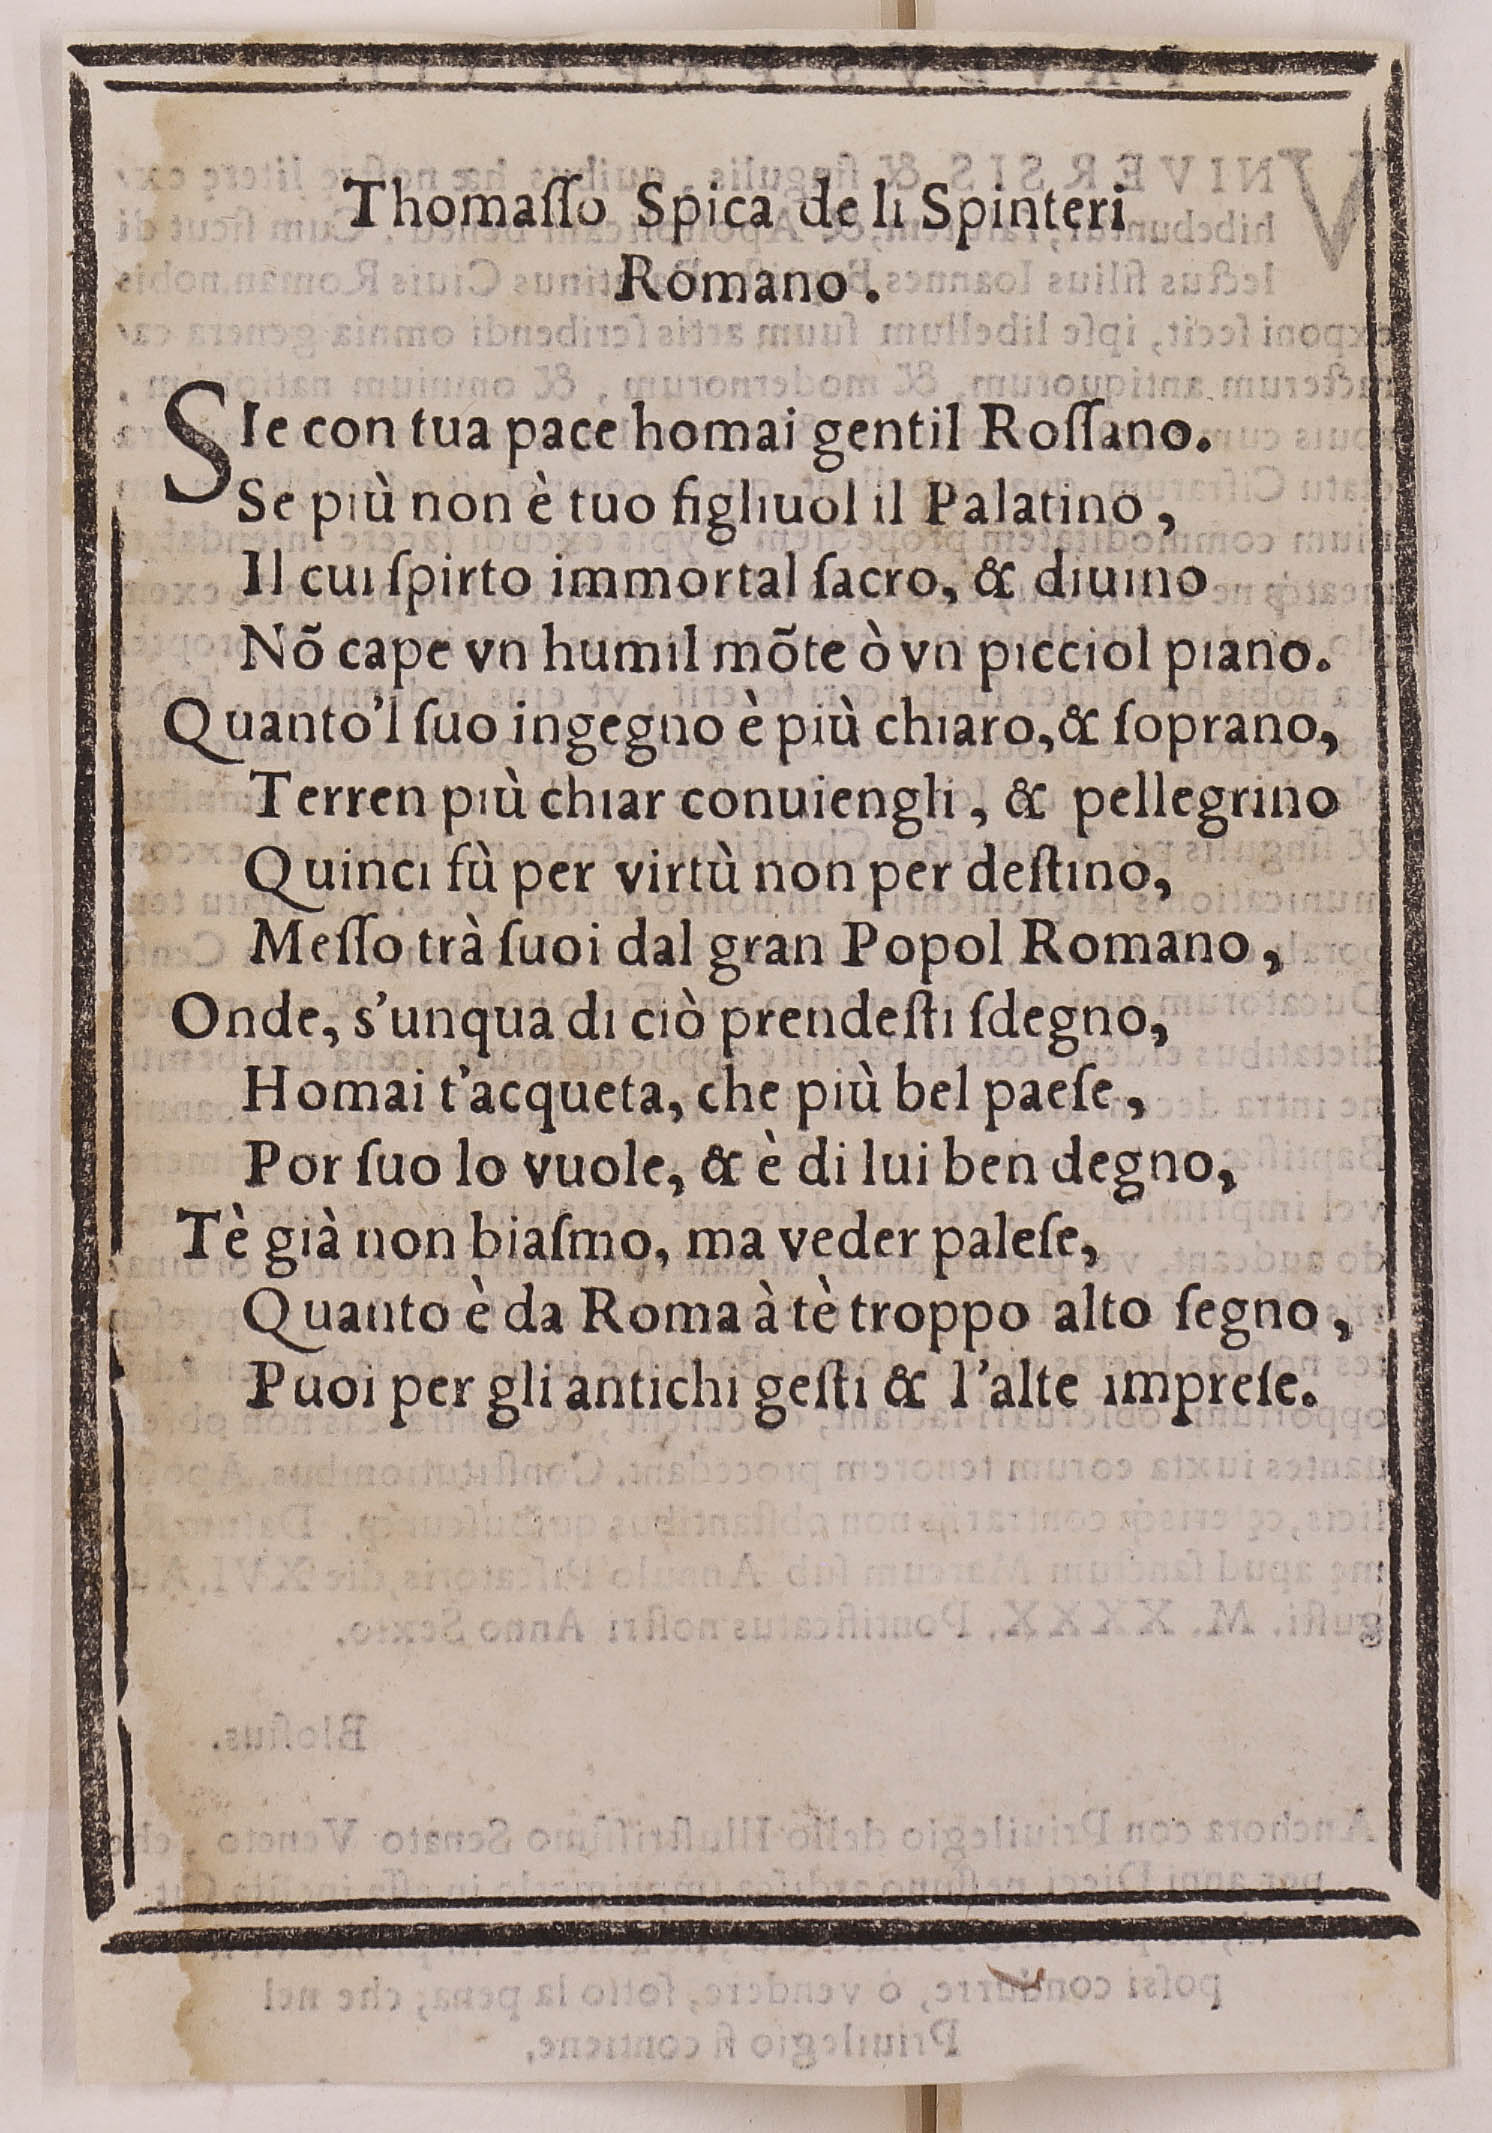 Thomaſſo Spica de li Spinteri
Romano.
SIe con tua pace homai gentil Roſſano.
Se più non è tuo figliuol il Palatino,
Il cui ſpirto immortal ſacro, & diuino
Nõ cape vn humil mõte ò vn picciol piano.
Quanto'l ſuo ingegno è più chiaro, & ſoprano,
Terren più chiar conuiengli, & pellegrino
Quinci fù per virtù non per deſtino,
Meſſo trà ſuoi dal gran Popol Romano,
Onde, s'unqua di ciò prendeſti ſdegno,
Homai t'acqueta, che più bel paeſe,
Por ſuo lo vuole, & è di lui ben degno,
Tè già non biaſmo, ma veder paleſe,
Quanto è da Roma à tè troppo alto ſegno,
Puoi per gli antichi geſti & l'alte impreſe.